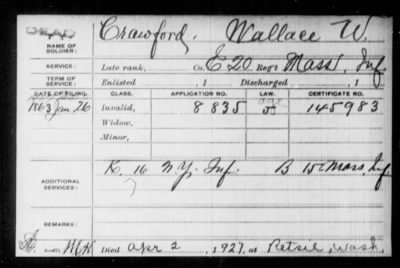 NAME OF SOLDIER: Crawford, Wallace W.
SERVICE: Late rank, Co. E 20 Reg't Mass. Inf.
TERM OF SERVICE: Enlisted , 1 Discharged , 1
DATE OF FILING. CLASS. APPLICATION NO. LAW. CERTIFICATE NO.
1863 Jan. 26 Invalid, 8835 145983
Widow,
Minor,
ADDITIONAL SERVICES: K. 16 N.Y. Inf. B 15 Mass. Inf
REMARKS:
Died Apr 2, 1927, at Retsil, Wash.